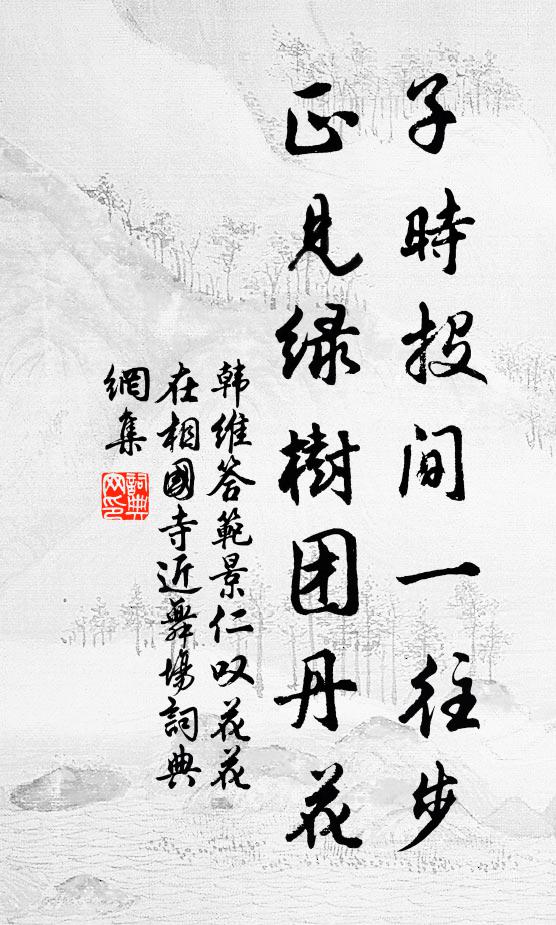 子時投間一往步
正見緑樹团丹花
韩維答範景仁叹花花
在相國寺近舞場詞典
網集
詞典
网印